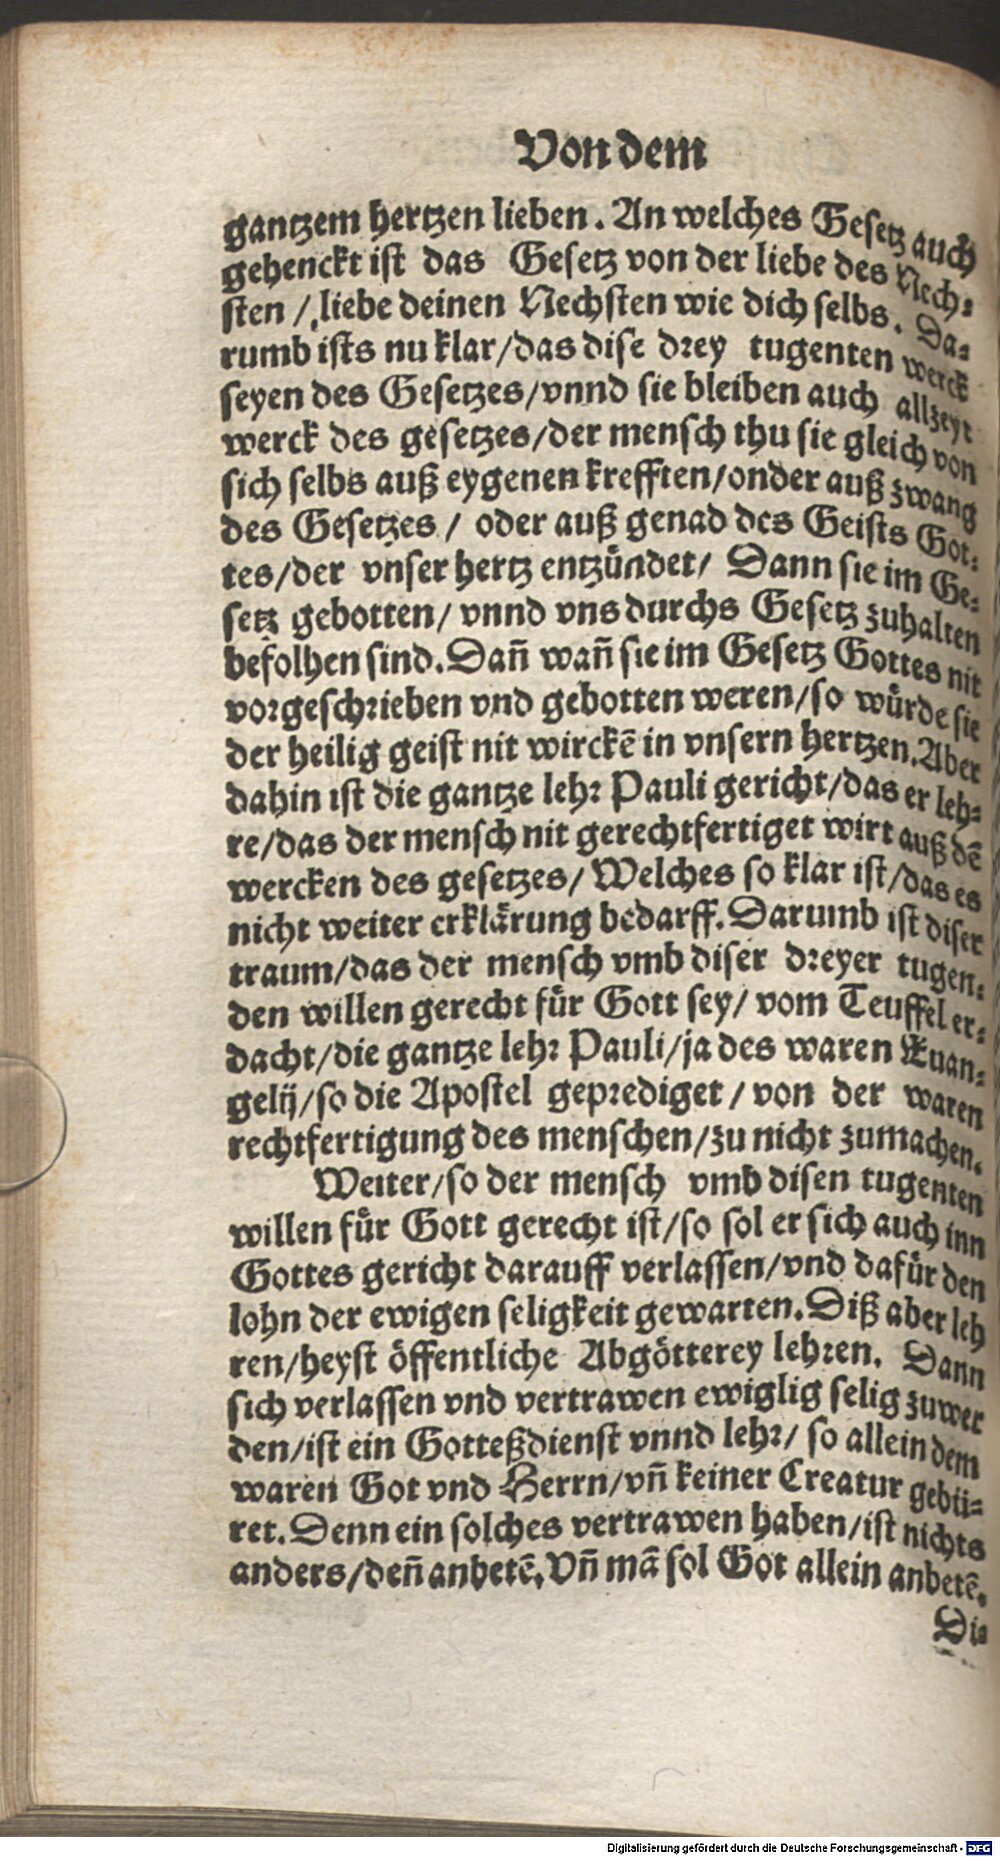 Von dem
gantzem hertzen lieben. An welches Gesetz auch
gehenckt ist das Gesetz von der liebe des Nech-
sten /liebe deinen Nechsten wie dich selbs. Da-
rumb ists nu klar/das dise drey tugenten werck
seyen des Gesetzes/vnnd sie bleiben auch allzeyt
werck des gesetzes/der mensch thu sie gleich von
sich selbs auß eygenen krefften/onder auß zwang
des Gesetzes / oder auß genad des Geists Got-
tes/der vnser hertz entzündet/ Dann sie im Ge-
setz gebotten/ vnnd vns durchs Gesetz zuhalten
befolhen sind. Dañ wañ sie im Gesetz Gottes nit
vorgeschrieben vnd gebotten weren/so würde sie
der heilig geist nit wirckē in vnsern hertzen. Aber
dahin ist die gantze lehr Pauli gericht/das er leh-
re/das der mensch nit gerechtfertiget wirt auß dē
wercken des gesetzes/ Welches so klar ist/das es
nicht weiter erklärung bedarff. Darumb ist diser
traum/das der mensch vmb diser dreyer tugen-
den willen gerecht für Gott sey/ vom Teuffel er-
dacht/die gantze lehr Pauli/ja des waren Euan-
gelij/so die Apostel geprediget / von der waren
rechtfertigung des menschen/zu nicht zumachen.
Weiter/so der mensch vmb disen tugenten
willen für Gott gerecht ist/so sol er sich auch inn
Gottes gericht darauff verlassen/vnd dafür den
lohn der ewigen seligkeit gewarten. Diß aber leh
ren/heyst öffentliche Abgötterey lehren. Dann
sich verlassen vnd vertrawen ewiglig selig zuwer
den/ist ein Gotteßdienst vnnd lehr/ so allein dem
waren Got vnd Herrn/vñ keiner Creatur gebü-
ret. Denn ein solches vertrawen haben/ist nichts
anders/deñ anbetē. Vñ mā sol Got allein anbetē.
Di-
Digitalisierung gefördert durch die Deutsche Forschungsgemeinschaft - DFG